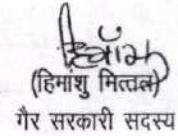 (हिमांशु मित्तल)
गैर सरकारी सदस्य